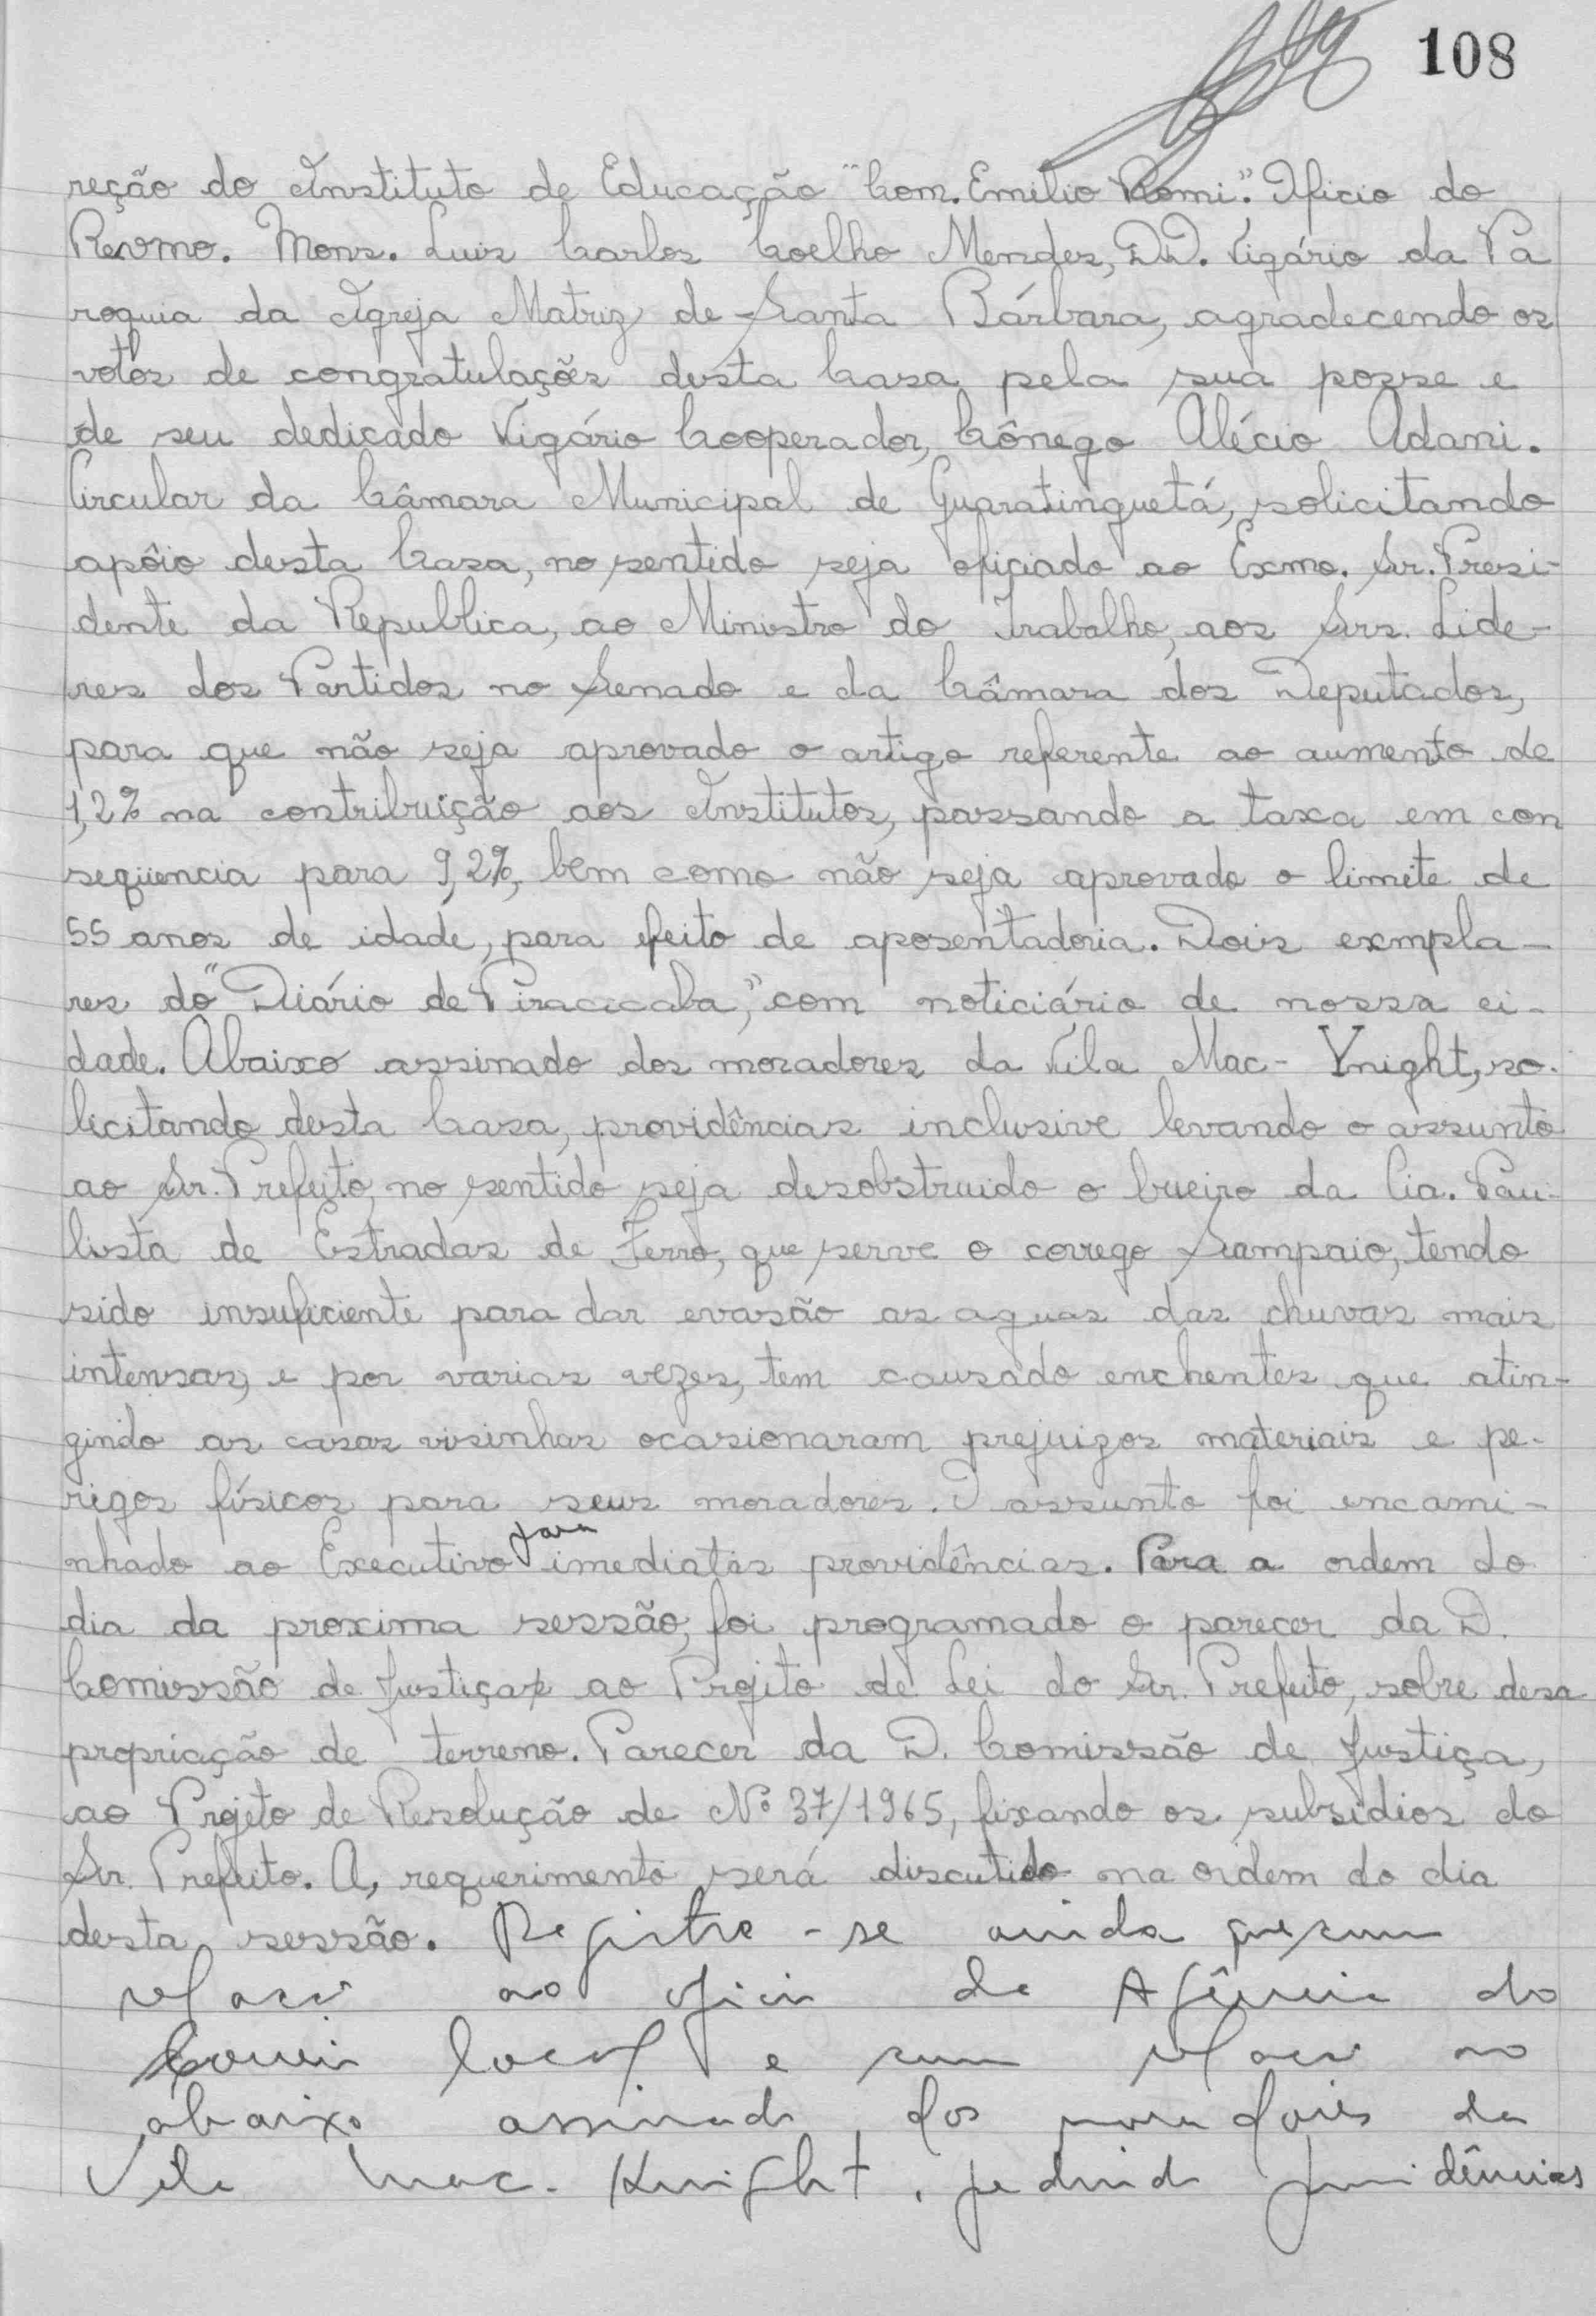 108
reção do Instituto de Educação "Com. Emilio Romi". Oficio do
Revmo. Mons. Luis Carlos Coelho Mendes, DD. Vigário da Pa
roquia da Igreja Matriz de Santa Bárbara, agradecendo os
votos de congratulações desta Casa pela sua posse e
de seu dedicado Vigário Cooperador, Cônego Alécio Adami.
Circular da Câmara Municipal de Guaratinguetá, solicitando
apôio desta Casa, no sentido seja oficiado ao Exmo. Sr. Presi-
dente da Republica, ao Ministro do Trabalho, aos Srs. Lide-
res dos Partidos no Senado e da Câmara dos Deputados,
para que não seja aprovado o artigo referente ao aumento de
1,2% na contribuição aos Institutos, passando a taxa em con
seqüencia para 9,2%, bem como não seja aprovado o limite de
55 anos de idade, para efeito de aposentadoria. Dois exempla-
res do "Diário de Piracicaba", com noticiário de nossa ci-
dade. Abaixo assinado dos moradores da Vila Mac- Ynight, so-
licitando desta Casa, providências inclusive levando o assunto
ao Sr. Prefeito, no sentido seja desobstruido o bueiro da Cia. Pau-
lista de Estradas de Ferro, que serve o corrego Sampaio, tendo
sido insuficiente para dar evasão as aguas das chuvas mais
intensas, e por varias vezes, tem causado enchentes que atin-
gindo as casas visinhas ocasionaram prejuizos materiais e pe-
rigos físicos para seus moradores. O assunto foi encami-
nhado ao Executivo para imediatas providências. Para a ordem do
dia da proxima sessão, foi programado o parecer da D.
Comissão de Justiça ao Projeto de Lei do Sr. Prefeito, sobre desa
propriação de terreno. Parecer da D. Comissão de Justiça,
ao Projeto de Resolução de Nº 37/1965, fixando os subsidios do
Sr. Prefeito. A, requerimento será discutido na ordem do dia
desta sessão. Registre-se ainda que, com
relação ao oficio da Agência do
Correio local e com relação ao
abaixo assinado dos moradores da
Vila Mac-Knight, pedindo providências